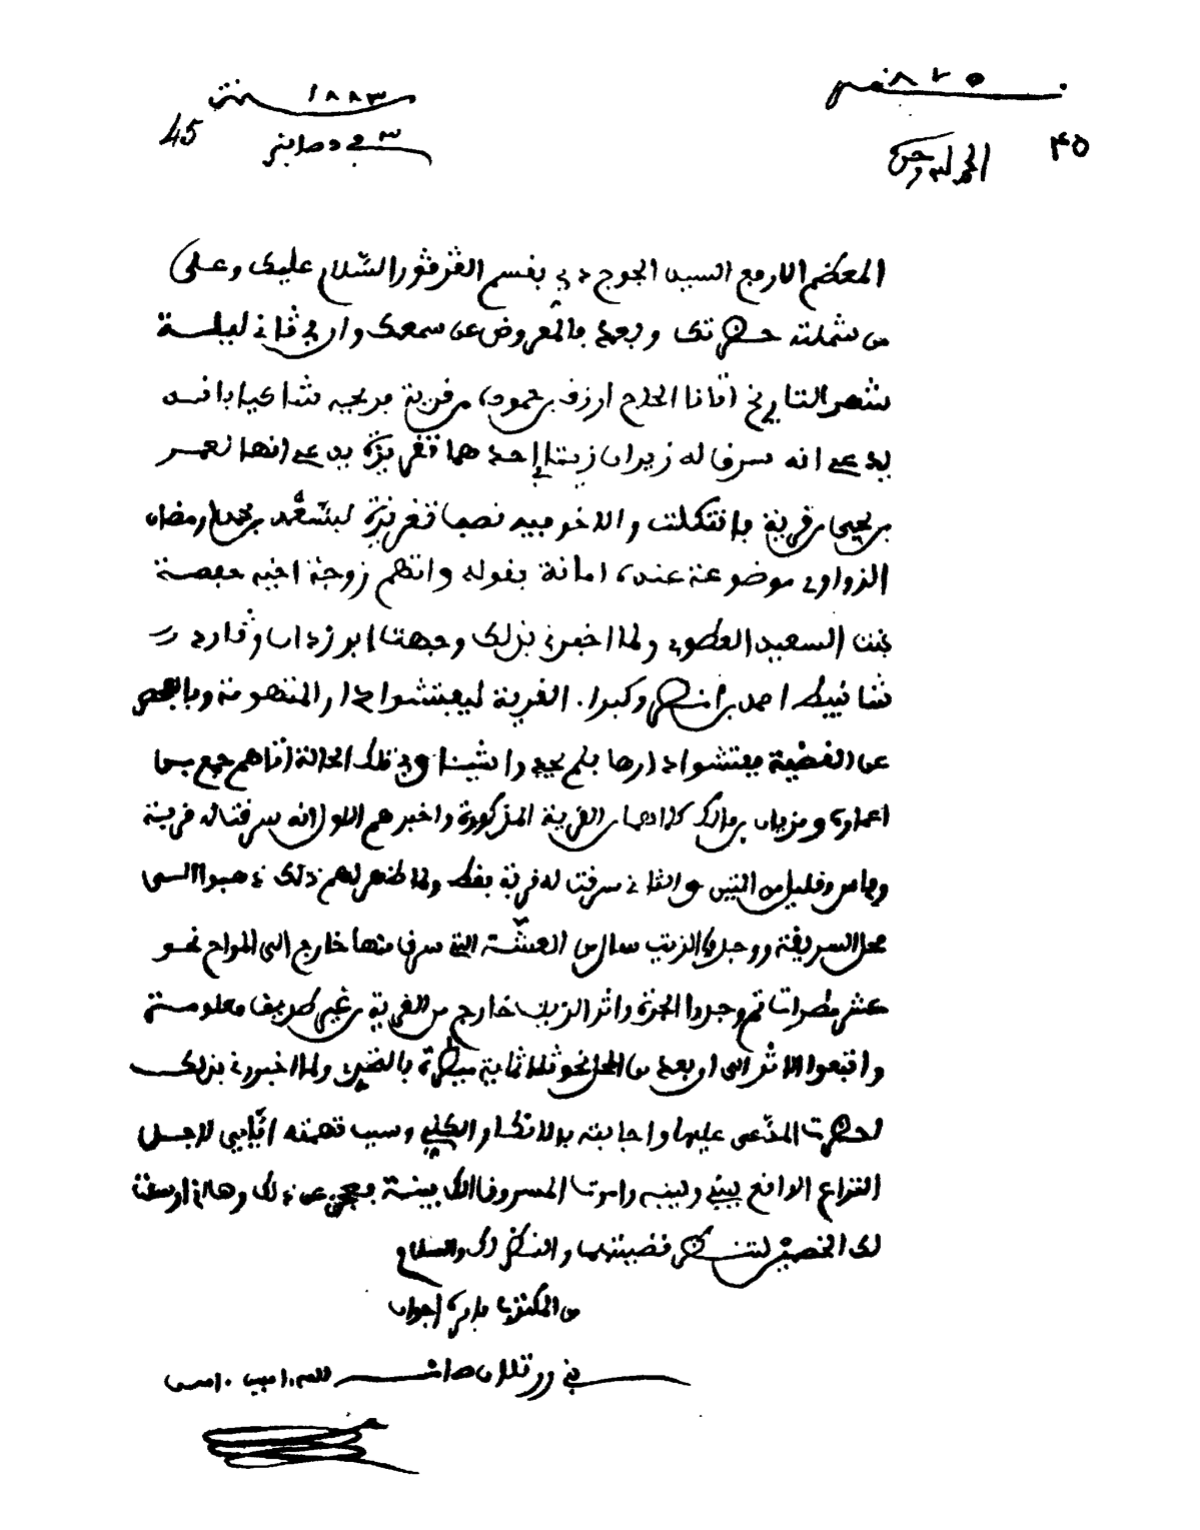 نمـ ٨٢٥ ـرة
سنة ١٨٨٣
45
٣ في دصانبر
٤٥
الحمد لله وحده
المعظم الارفع السيد الجوج دبي بقسم القرقور السلام عليك وعلى
من شملته حضرتك وبعد فالمعروض عن سمعك وان في ثاني ليلة
شهر التاريخ اتانا الحاج ارزقي بن حمودي من قرية شاكيا بانه
يدعي انه سرق له زيران زيتا إحدهما تغريزة يدعي انها لعمر
بن يحيى من قرية والاخر فيه نصف تغريزة لبلسعد بن محمد ارمضان
الزواوي موضوعة عنده امانة بقوله واتهم زوجة اخيه حفصة
بنت السعيد العطوي ولما اخبرني بذلك وجهت
شانبيط احمد بن وكبرا. القرية ليفتشوا دار المتهومة وبالفحص
عن القضية ففتشوا دارها فلم يجدوا شيئا وفي تلك الحالة اتاهم
اعمارة ومزيان كلاهما من القرية المذكورة واخبرهم الاول انه سرقت له قربة
وفاس وقليل من التين والثاني سرقت له قربة فقط ولما ظهر لهم ذلك ذهبوا الى
محل السريقة ووجدوا الزيت سال من العشة التي سرق منها خارج الى المراح نحو
عشر مطرات ثم وجدوا الجرة واثر الزيت خارج من القرية من غير طريق معلومة
واتبعوا الاثر الى ان بعد من المحل نحو ثلاثماية ميترة بالتقريب ولما اخبروني بذلك
احضرت المدعى عليها واجابته بالانكار الكلي وسبب تهمته اياي لاجل
النزاع الواقع بيني وبينه واموت المسروق لك بينة فعجز عن ذلك وهاني ارسلت
لك الخصمين لتنظر قضيتهما والنظر لك والسلام
من المكتوب بامره اجواب
بني ورتلان دائرة